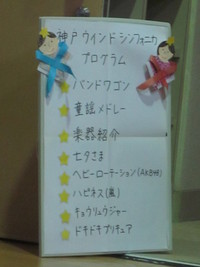 神戸ウインドシンフォニカ
プログラム
バンドワゴン
童謡メドレー
楽器紹介
七夕さま
ヘビーローテーション(AKB48)
ハピネス(嵐)
キョウリュウジャー
ドキドキプリキュア